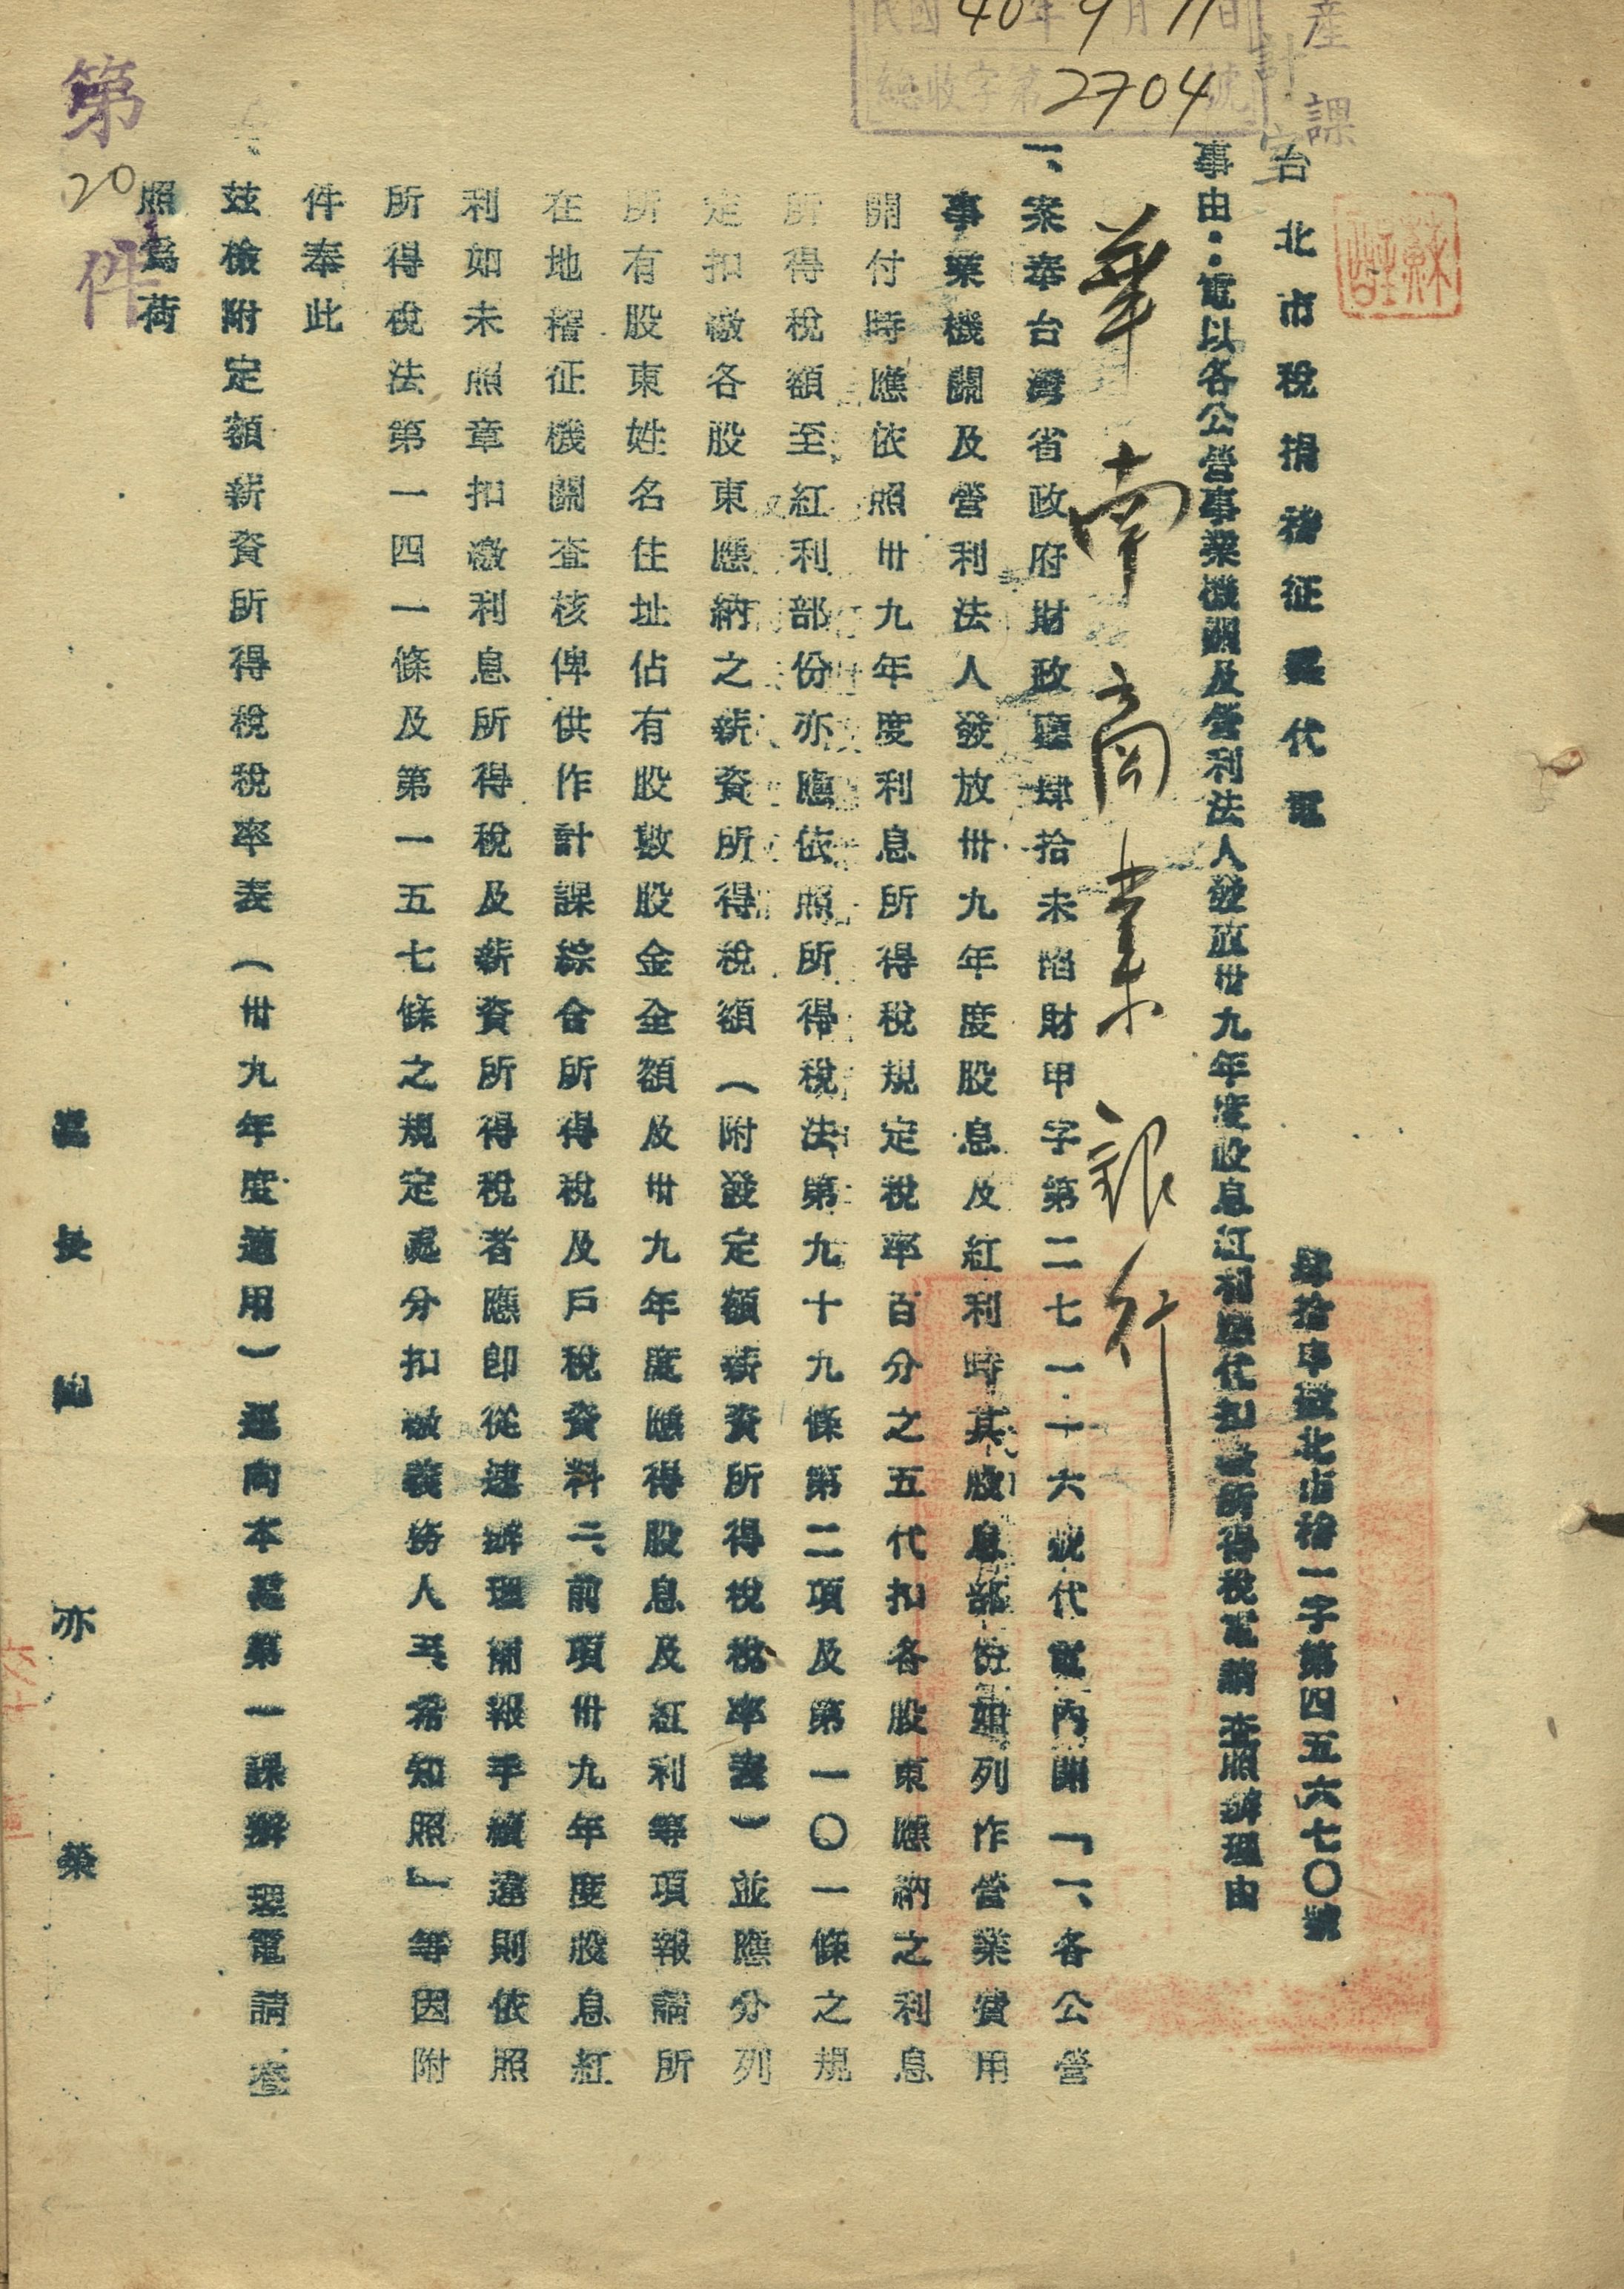 產
課
計
民國40年9月11日
總收字第2704號
台北市稅捐稽征處代電
肆拾申徵北市稽一字第四五六七〇號
事由：電以各公營事業機關及營利法人發放卅九年度股息紅利應代扣繳所得稅電請查照辦理由
華南商業銀行
一、案奉台灣省政府財政廳肆拾未陷財甲字第二七一一六號代電內開「一、各公營
事業機關及營利法人發放卅九年度股息及紅利時其股息部份如列作營業費用
開付時應依照卅九年度利息所得稅規定稅率百分之五代扣各股東應納之利息
所得稅額至紅利部份亦應依照所得稅法第九十九條第二項及第一〇一條之規
定扣繳各股東應納之薪資所得稅額（附發定額薪資所得稅稅率表）並應分列
所有股東姓名住址佔有股數股金金額及卅九年度應得股息及紅利等項報請所
在地稽征機關查核俾供作計課綜合所得稅及戶稅資料二、前項卅九年度股息紅
利如未照章扣繳利息所得稅及薪資所得稅者應即從速辦理補報手續違則依照
所得稅法第一四一條及第一五七條之規定處分扣繳義務人三、希知照」等因附
件奉此
茲檢附定額薪資所得稅稅率表（卅九年度適用）逕向本處第一課辦理電請查
照為荷
處長 亦榮
第20件